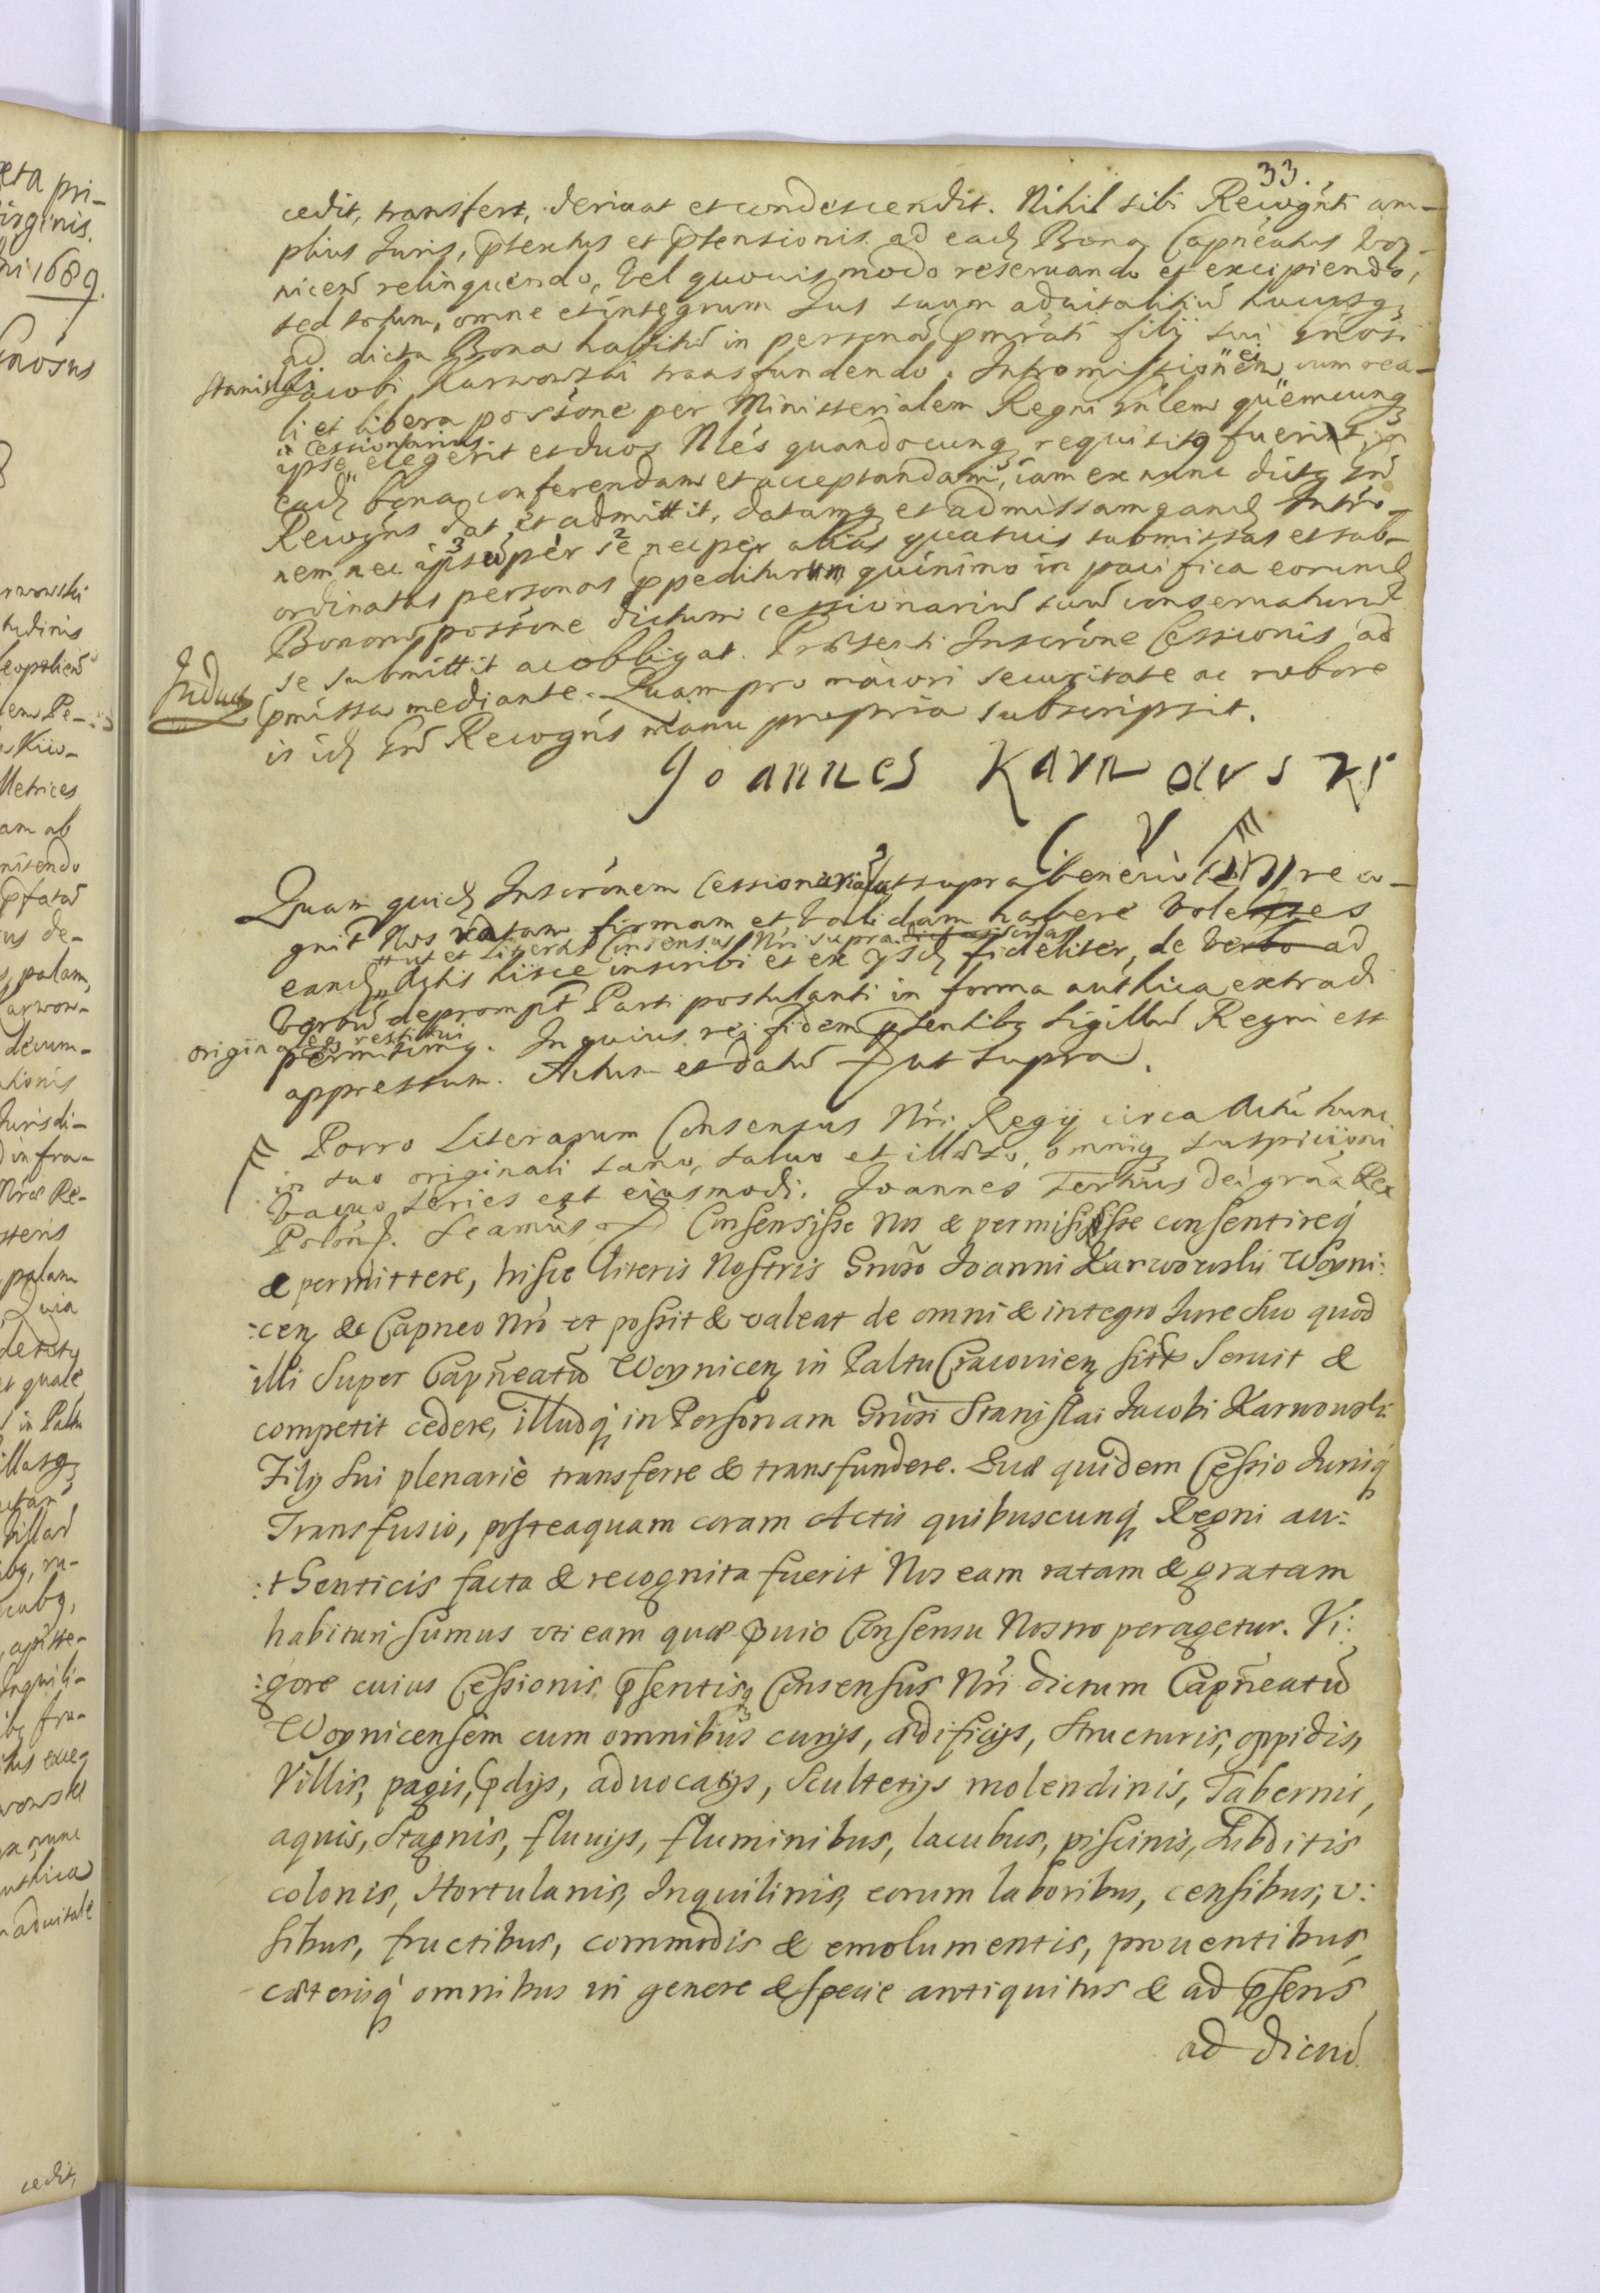 33.
cedit, transfert, deriuat et condescendit. Nihil sibi Recogn̄ti am-
plius Juris, p̄textus et p̄tensionis ad eadē Bona Capn̄eatus Woy-
nicen̄ relinquendo, Vel quouis modo reseruando et excipiendo,
sed totum, omne et integrum Jus suum aduitalitiū hucusq;
ad dicta Bona habitū in personā p̄mrāti filij sui Gn̄osi
Stanislai Jacobi Karwowski transfundendo. Intromissionem ei cum rea-
li et libera poss̄one per Ministerialem Regni Gn̄lem quemcunq;
ipse Cessionarius elegerit et duos Nb̄les quandocunq; requisitq fuerit, in
eadē bona conferendam et acceptandam, iam ex nunc dictq Gn̄
Recogn̄s dat et admittit, datamq; et admissam eandē Intro-
nem nec ipse per se nec per alias quasuis submissas et sub-
ordinatas personas p̄pediturum quinimo in pacifica eorundē
Bonorū poss̄one dictum cessionariū suū conseruaturū
se submittit ac obligat. Præsenti Inscrōne Cessionis ad
Induct
p̄missa mediante. Quam pro maiori securitate ac robore
is idē Gn̄ Recogn̄s manu propria subscripsit.
Joannes Karwowski
Quam quidē Inscrōnem Cessionariā ut supra beneuo reco-
gnit Nos ratam firmam et validam habere Volentes
ut et Literas Consensus Nr̄i supra
eandē Actis hisce inscribi et ex ijsdē fideliter, de verbo ad
Verbū deprompt Parti postulanti in forma auth̄ica extradi
originales restitui
permisimq. In cuius rei fidem p̄sentibq sigillū Regni est
appressum. Actum et datū ut supra.
Porro Literarum Consensus Nr̄i Regij circa Actū hunc
in suo originali sano, saluo et illæso, omniq; suspicioni
Vacuo series est eiusmodi. Joannes Tertius Dei grāa Rex
Poloniæ. Seamus Consensisse Nos & permisisse consentireq́
& permittere, hisce literis Nostris Gn̄oso Joanni Karwowski Woyni:
:cen̄ &c Capneo Nr̄o vt possit & valeat de omni & integro Jure suo quod
illi super Capn̄eatū Woynicen̄ in Paltu Cracouien̄ sitū seruit &
competit cedere, illudq́ in Personam Gn̄osi Stanislai Jacobi Karwowski
Filij sui plenariè transferre & transfundere. Quæ quidem Cessio Jurisq́
Transfusio, posteaquam coram Actis quibuscunq́ Regni au:
:thenticis facta & recognita fuerit Nos eam ratam & gratam
habituri sumus vti eam quæ p̄uio Consensu Nostro peragetur. Vi:
:gore cuius Cessionis p̄sentisq; Consensus Nr̄i dictum Capn̄eatū
Woynicensem cum omnibus curijs, ædificijs, structuris, oppidis,
Villis, pagis, p̄dijs, aduocatijs, Scultetijs molendinis, Tabernis,
aquis, stagnis, fluuijs, fluminibus, lacubus, piscinis, Subditis
colonis, Hortulanis, Inquilinis, eorum laboribus, censibus, v:
sibus, fructibus, commodis & emolumentis, prouentibus,
cæterisq́ omnibus in genere & specie antiquitus & ad p̄sens
ad dictū